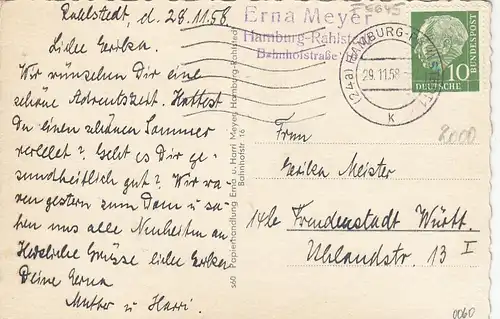 Rahlstedt, d. 28.11.58
Liebe Gerika.
Wir wünschen Dir eine
schöne Adventszeit. Hattest
Du einen schönen Sommer
verlebt? Geht es Dir ge-
sundheitlich gut? Wir wa-
ren gestern zum Dom u sa-
hen uns alle Neuheiten an
Herzliche Grüsse liebe Gerika
Deine Erna
Mutter u Harri.
Erna Meyer
Hamburg-Rahlst
Bahnhofstraße
s60 Papierhandlung Erna u. Harri Meyer, Hamburg-Rahlstedt
Bahnhofstr. 16
(24a) HAMBURG-RAHLSTEDT
29.11.58
K
DEUTSCHE
BUNDESPOST
10
8000
Frau
Gerika Meister
14b Freudenstadt Württ.
Uhlandstr. 13 I
0060